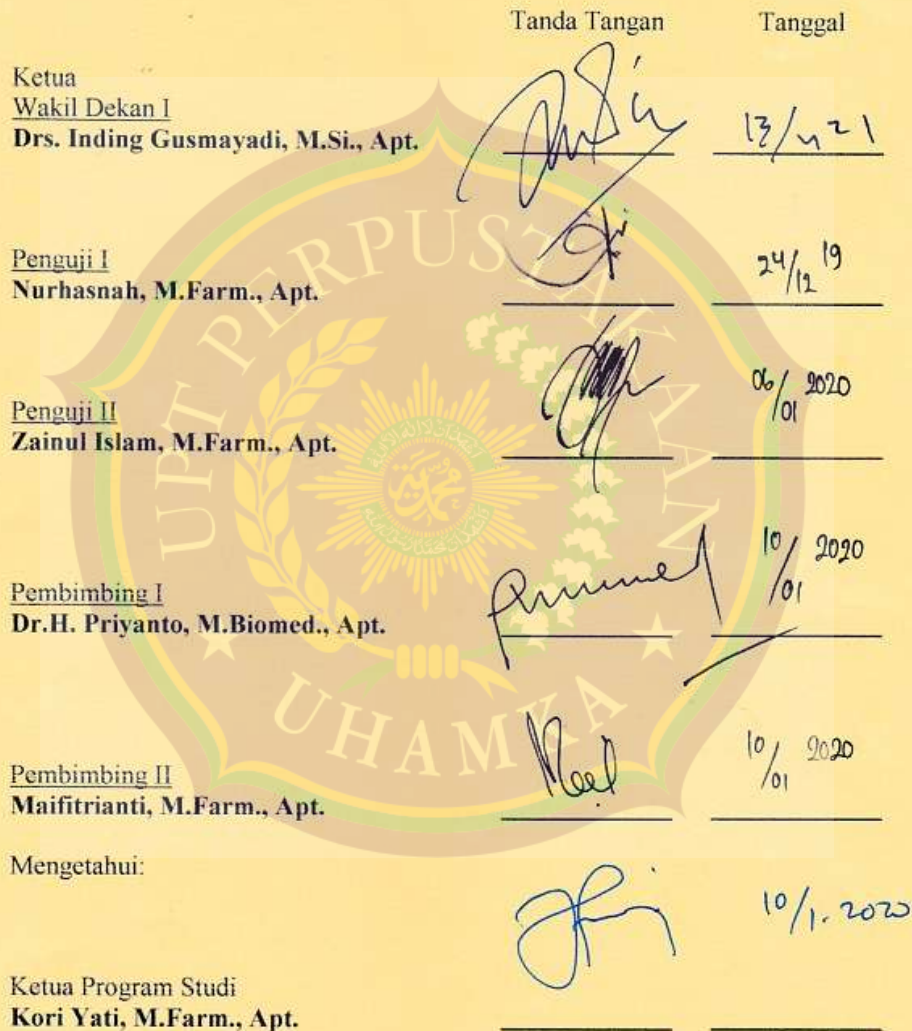 Tanda Tangan Tanggal
Ketua
Wakil Dekan I
Drs. Inding Gusmayadi, M.Si., Apt. 13/4 21
Penguji I
Nurhasnah, M.Farm., Apt. 24/12 19
Penguji II
Zainul Islam, M.Farm., Apt. 06/01 2020
Pembimbing I
Dr.H. Priyanto, M.Biomed., Apt. 10/01 2020
Pembimbing II
Maifitrianti, M.Farm., Apt. 10/01 2020
Mengetahui:
10/1. 2020
Ketua Program Studi
Kori Yati, M.Farm., Apt.
UPT PERPUSTAKAAN
UHAMKA